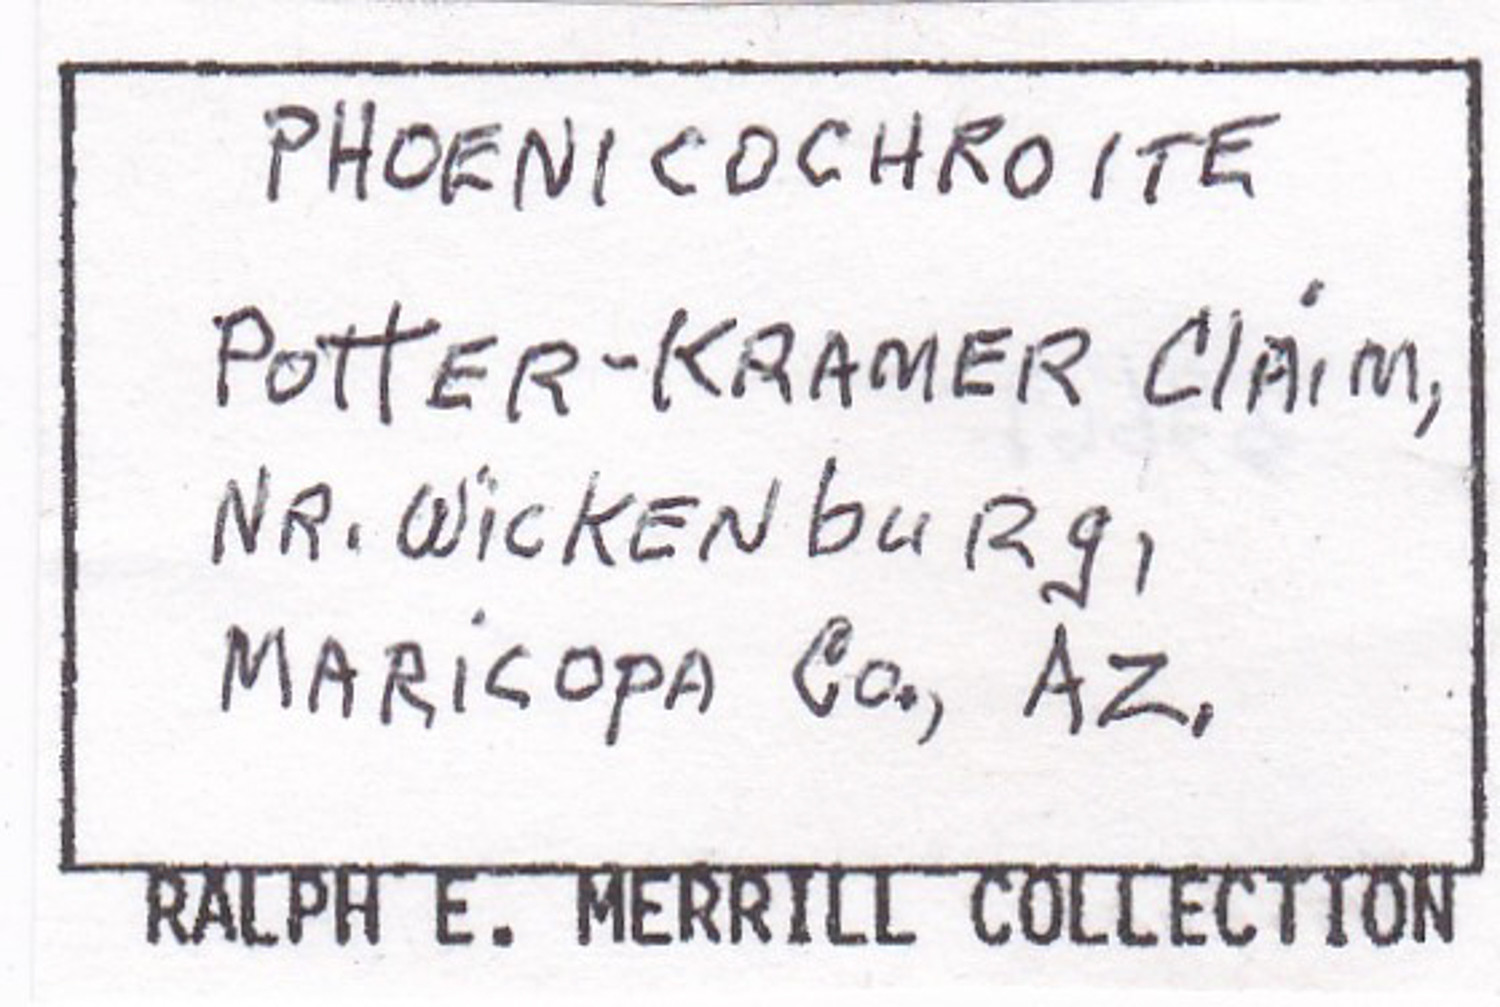 PHOENICOCHROITE
POttER-KRAMER ClAiM,
NR. WiCKENbuRg,
MARiCOPA Co., AZ.
RALPH E. MERRILL COLLECTION